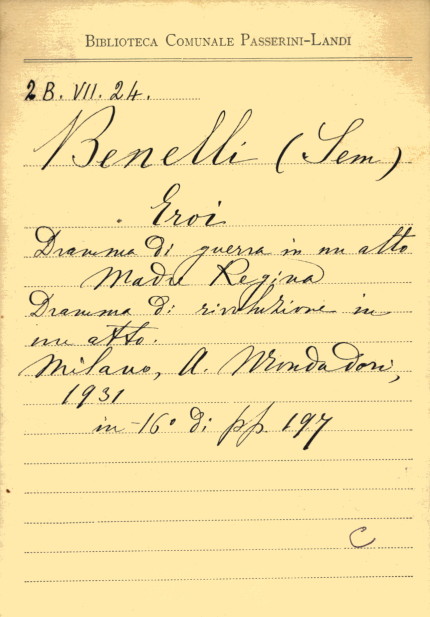 BIBLIOTECA COMUNALE PASSERINI-LANDI
2B. VII. 24.
Benelli (Sem)
Eroi
Dramma di guerra in un atto
Madre Regina
Dramma di rivoluzione in
un atto.
Milano, A. Mondadori,
1931
in-16° di pp. 197
C